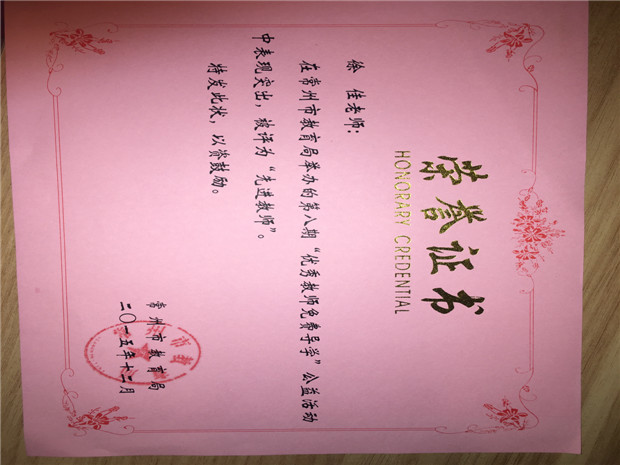 荣誉证书
HONORARY CREDENTIAL
徐 佳老师：
在常州市教育局举办的第八期“优秀教师免费导学”公益活动
中表现突出，被评为“先进教师”。
特发此状，以资鼓励。
常州市教育局
二〇一五年十二月